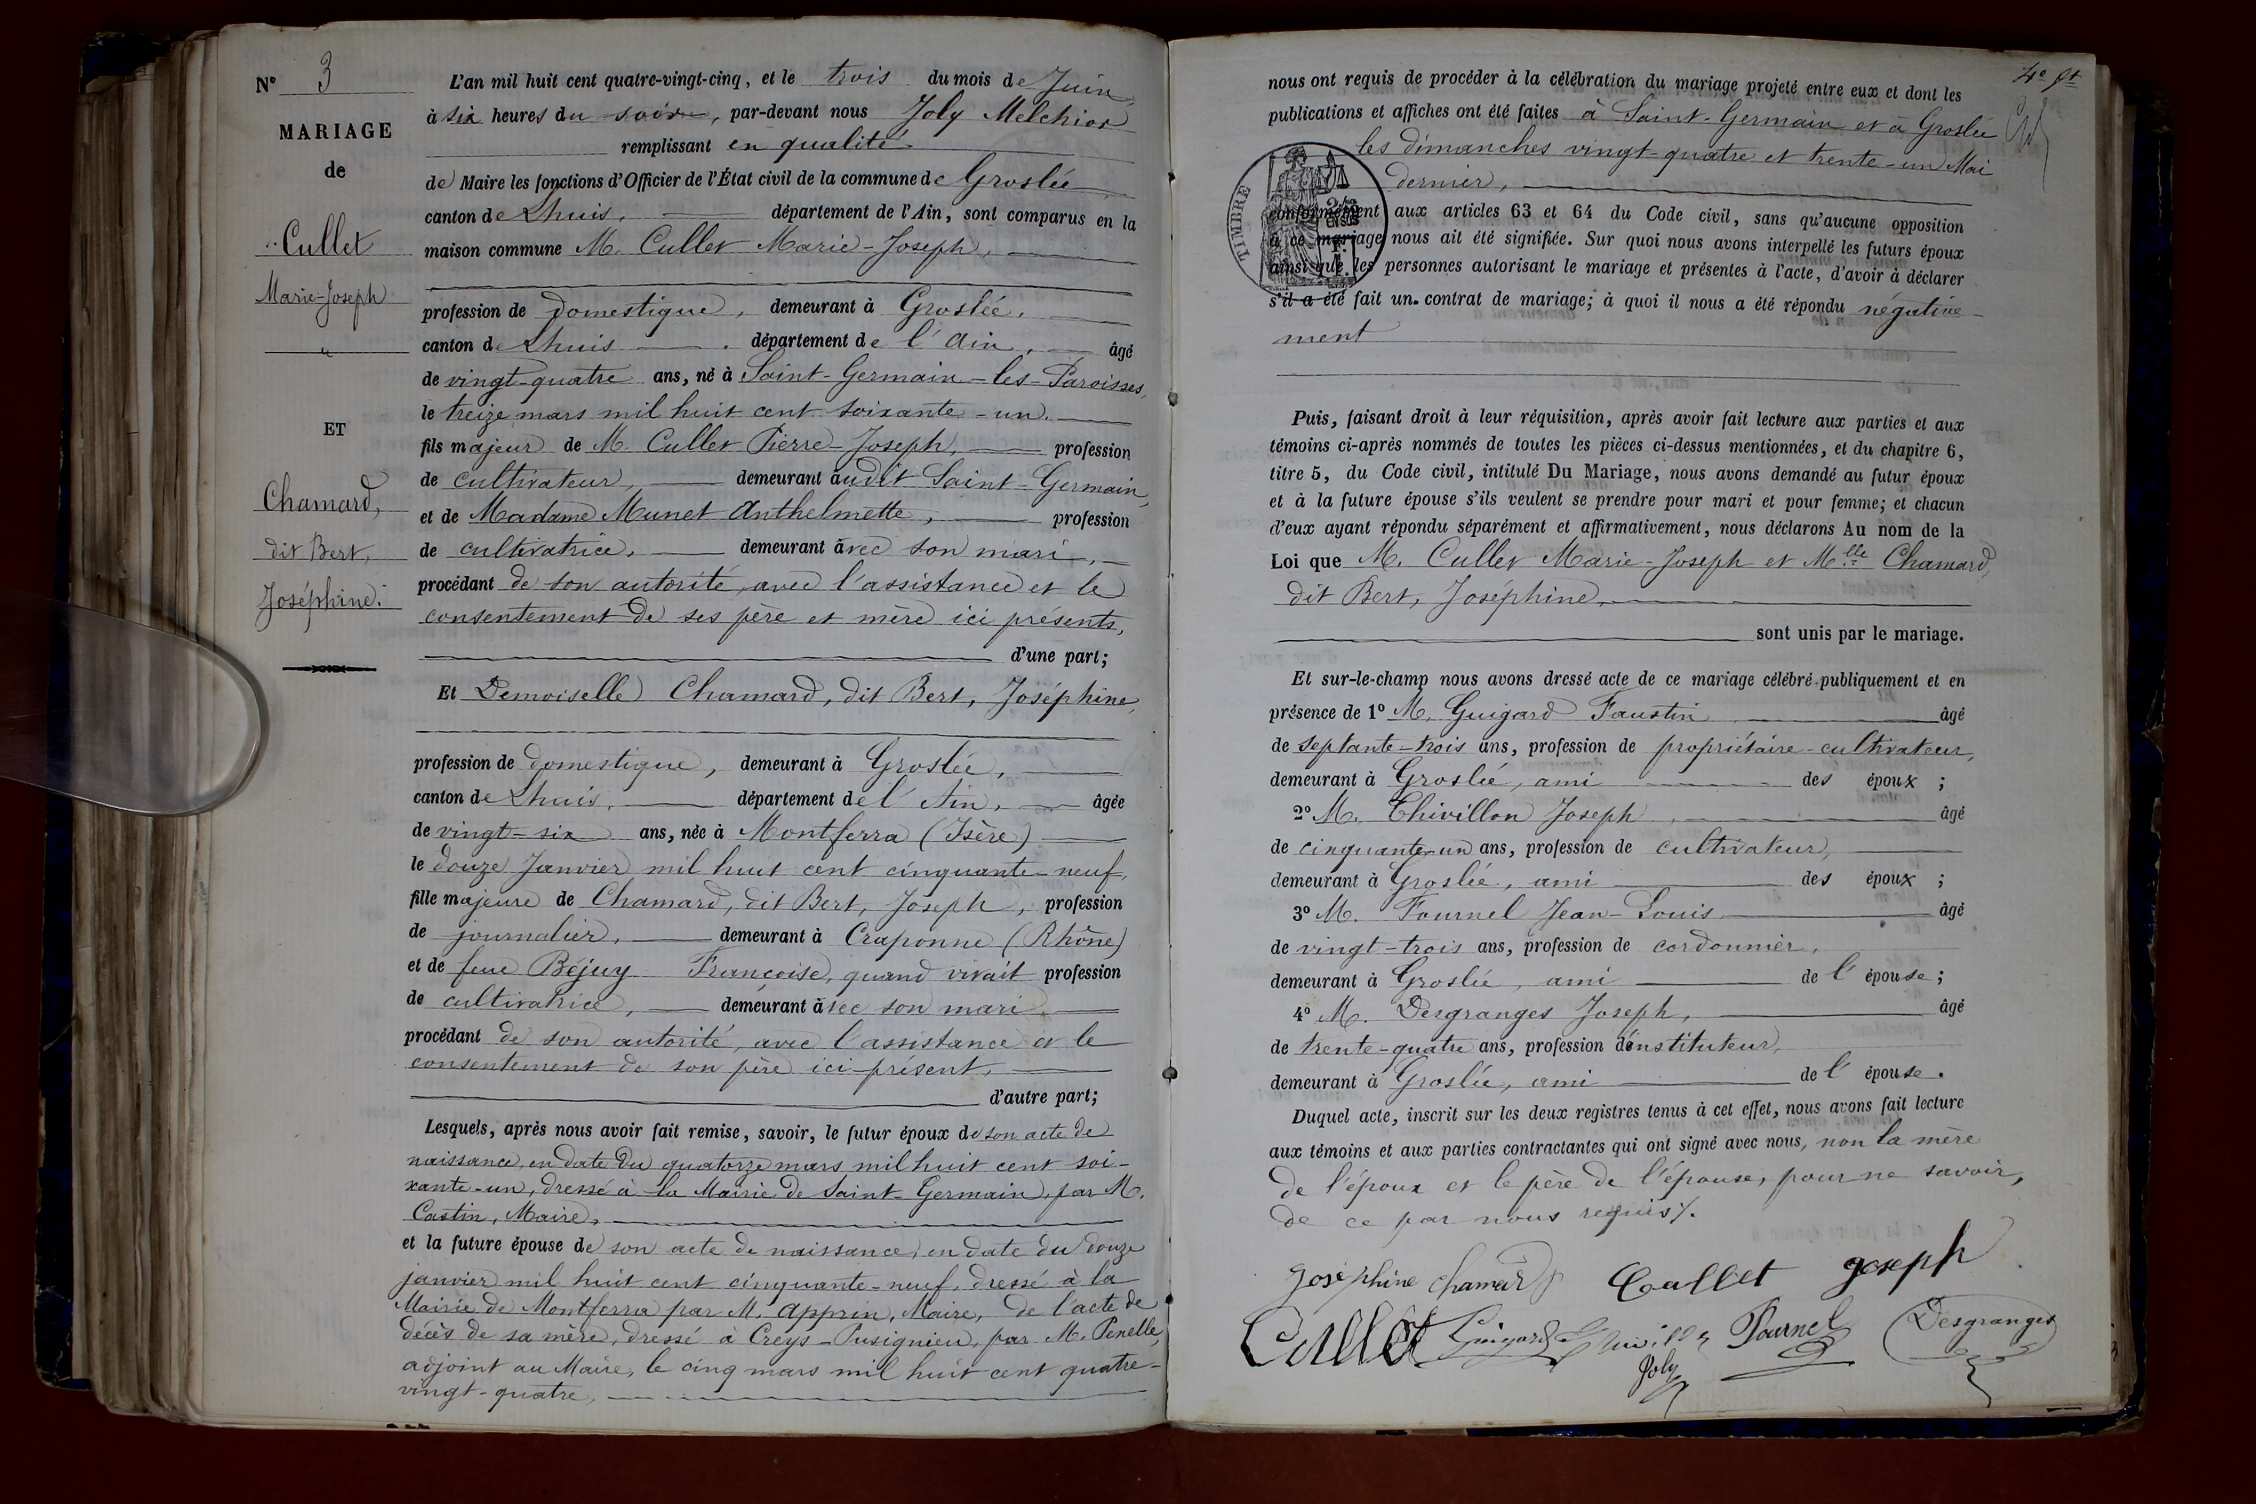 N° 3
MARIAGE
de
Cullet
Marie-Joseph
ET
Chamard,
dit Bert,
Joséphine.
L'an mil huit cent quatre-vingt-cinq, et le trois du mois de Juin
à six heures du soir, par-devant nous Joly Melchior
remplissant en qualité
de Maire les fonctions d'Officier de l'État civil de la commune de Groslée
canton de Lhuis, département de l'Ain, sont comparus en la
maison commune M. Cullet Marie-Joseph,
profession de domestique, demeurant à Groslée,
canton de Lhuis département de l'Ain, âgé
de vingt-quatre ans, né à Saint-Germain-les-Paroisses,
le treize mars mil huit cent soixante-un.
fils majeur de M. Cullet Pierre-Joseph, profession
de cultivateur, demeurant audit Saint-Germain,
et de Madame Munet Anthelmette, profession
de cultivatrice, demeurant avec son mari,
procédant de son autorité, avec l'assistance et le
consentement de ses père et mère ici présents,
d'une part;
Et Demoiselle Chamard, dit Bert, Joséphine,
profession de domestique, demeurant à Groslée,
canton de Lhuis, département de l'Ain, âgée
de vingt-six ans, née à Montferra (Isère)
le douze Janvier mil huit cent cinquante-neuf,
fille majeure de Chamard, dit Bert, Joseph, profession
de journalier, demeurant à Craponne (Rhône)
et de feue Béjuy Françoise, quand vivait profession
de cultivatrice, demeurant avec son mari
procédant de son autorité, avec l'assistance et le
consentement de son père ici présent,
d'autre part;
Lesquels, après nous avoir fait remise, savoir, le futur époux de son acte de
naissance, en date du quatorze mars mil huit cent soi-
xante-un, dressé à la Mairie de Saint-Germain, par M.
Castin, Maire,
et la future épouse de son acte de naissance, en date du douze
janvier mil huit cent cinquante-neuf, dressé à la
Mairie de Montferra par M. Apprin, Maire, de l'acte de
décès de sa mère, dressé à Creys-Pusignieu, par M. Penelle,
adjoint au Maire, le cinq mars mil huit cent quatre-
vingt-quatre,
4e ft
nous ont requis de procéder à la célébration du mariage projeté entre eux et dont les
publications et affiches ont été faites à Saint-Germain et à Groslée
les dimanches vingt-quatre et trente-un Mai
dernier,
TIMBRE
conformément aux articles 63 et 64 du Code civil, sans qu'aucune opposition
à ce mariage nous ait été signifiée. Sur quoi nous avons interpellé les futurs époux
ainsi que les personnes autorisant le mariage et présentes à l'acte, d'avoir à déclarer
s'il a été fait un contrat de mariage; à quoi il nous a été répondu négative-
ment
Puis, faisant droit à leur réquisition, après avoir fait lecture aux parties et aux
témoins ci-après nommés de toutes les pièces ci-dessus mentionnées, et du chapitre 6,
titre 5, du Code civil, intitulé Du Mariage, nous avons demandé au futur époux
et à la future épouse s'ils veulent se prendre pour mari et pour femme; et chacun
d'eux ayant répondu séparément et affirmativement, nous déclarons Au nom de la
Loi que M. Cullet Marie-Joseph et Mlle Chamard,
dit Bert, Joséphine,
sont unis par le mariage.
Et sur-le-champ nous avons dressé acte de ce mariage célébré publiquement et en
présence de 1° M. Guigard Faustin âgé
de septante-trois ans, profession de propriétaire-cultivateur,
demeurant à Groslée, ami des époux ;
2° M. Thivillon Joseph, âgé
de cinquante-un ans, profession de cultivateur,
demeurant à Groslée, ami des époux ;
3° M. Fournel Jean-Louis âgé
de vingt-trois ans, profession de cordonnier,
demeurant à Groslée, ami de l'épouse;
4° M. Desgranges Joseph, âgé
de trente-quatre ans, profession d'instituteur,
demeurant à Groslée, ami de l'épouse.
Duquel acte, inscrit sur les deux registres tenus à cet effet, nous avons fait lecture
aux témoins et aux parties contractantes qui ont signé avec nous, non la mère
de l'époux et le père de l'épouse, pour ne savoir,
de ce par nous requis ⁒.
Joséphine Chamard Cullet Joseph
Cullet Guigard Fournel Desgranges
Joly